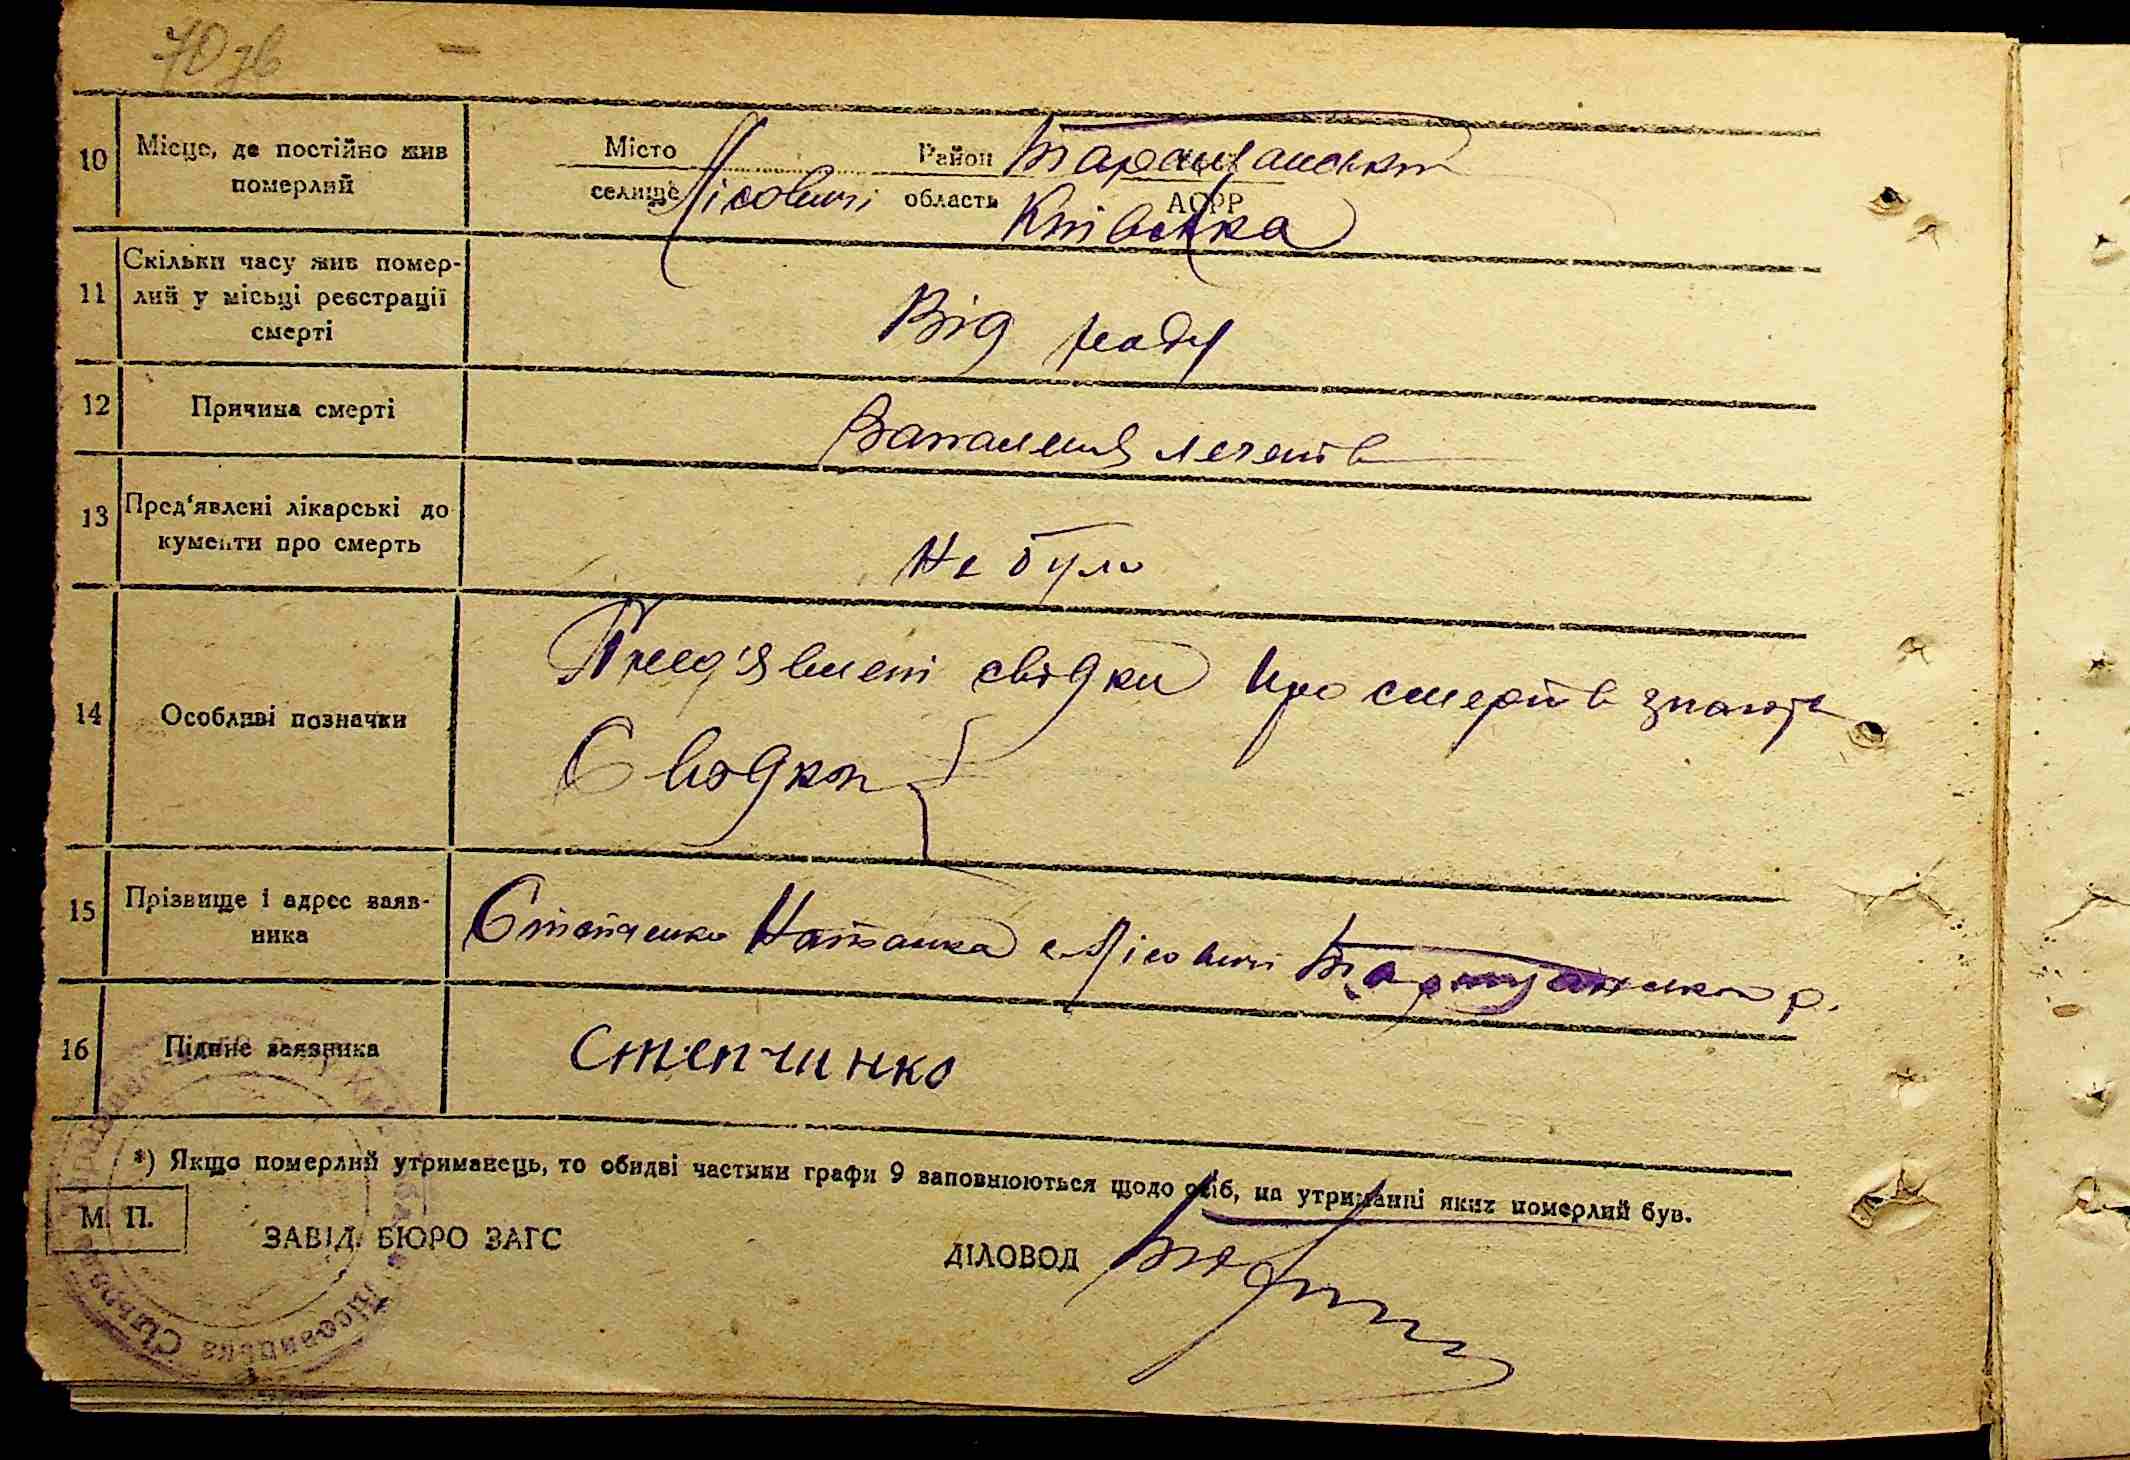 70 зв
10
Місце, де постійно жив
померлий
Місто
селище Лісовичі
Район Таращанський
область Київська АСРР
11
Скільки часу жив помер-
лий у місьці реєстрації
смерті
Від роду
12
Причина смерті
Запалення легенів
13
Пред'явлені лікарські до
кументи про смерть
Не було
14
Особливі позначки
Пред'явлені свідки про смерть знають
Свідки
15
Прізвище і адрес заяв-
ника
Степченко Наталка с. Лісовичі Таращанського р.
16
Підпис заявника
Степчинко
*) Якщо померлий утриманець, то обидві частини графи 9 заповнюються щодо осіб, на утриманні яких померлий був.
М. П.
ЗАВІД. БЮРО ЗАГС
ДІЛОВОД
Лісовицька Сільрада